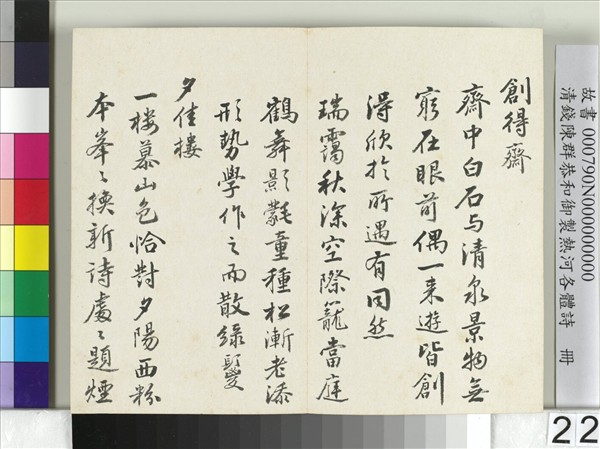 創得齋
齋中白石与清泉景物無
窮在眼前偶一来遊皆創
得欣於所遇有同然
瑞靄秋深空際籠當庭
鶴舞影氋童種松漸老添
形勢學作之而散綠鬉
夕佳樓
一樓暮山色恰對夕陽西粉
本峯〻換新詩處〻題煙
故書 000790N000000000
清錢陳群恭和御製熱河各體詩 冊
22